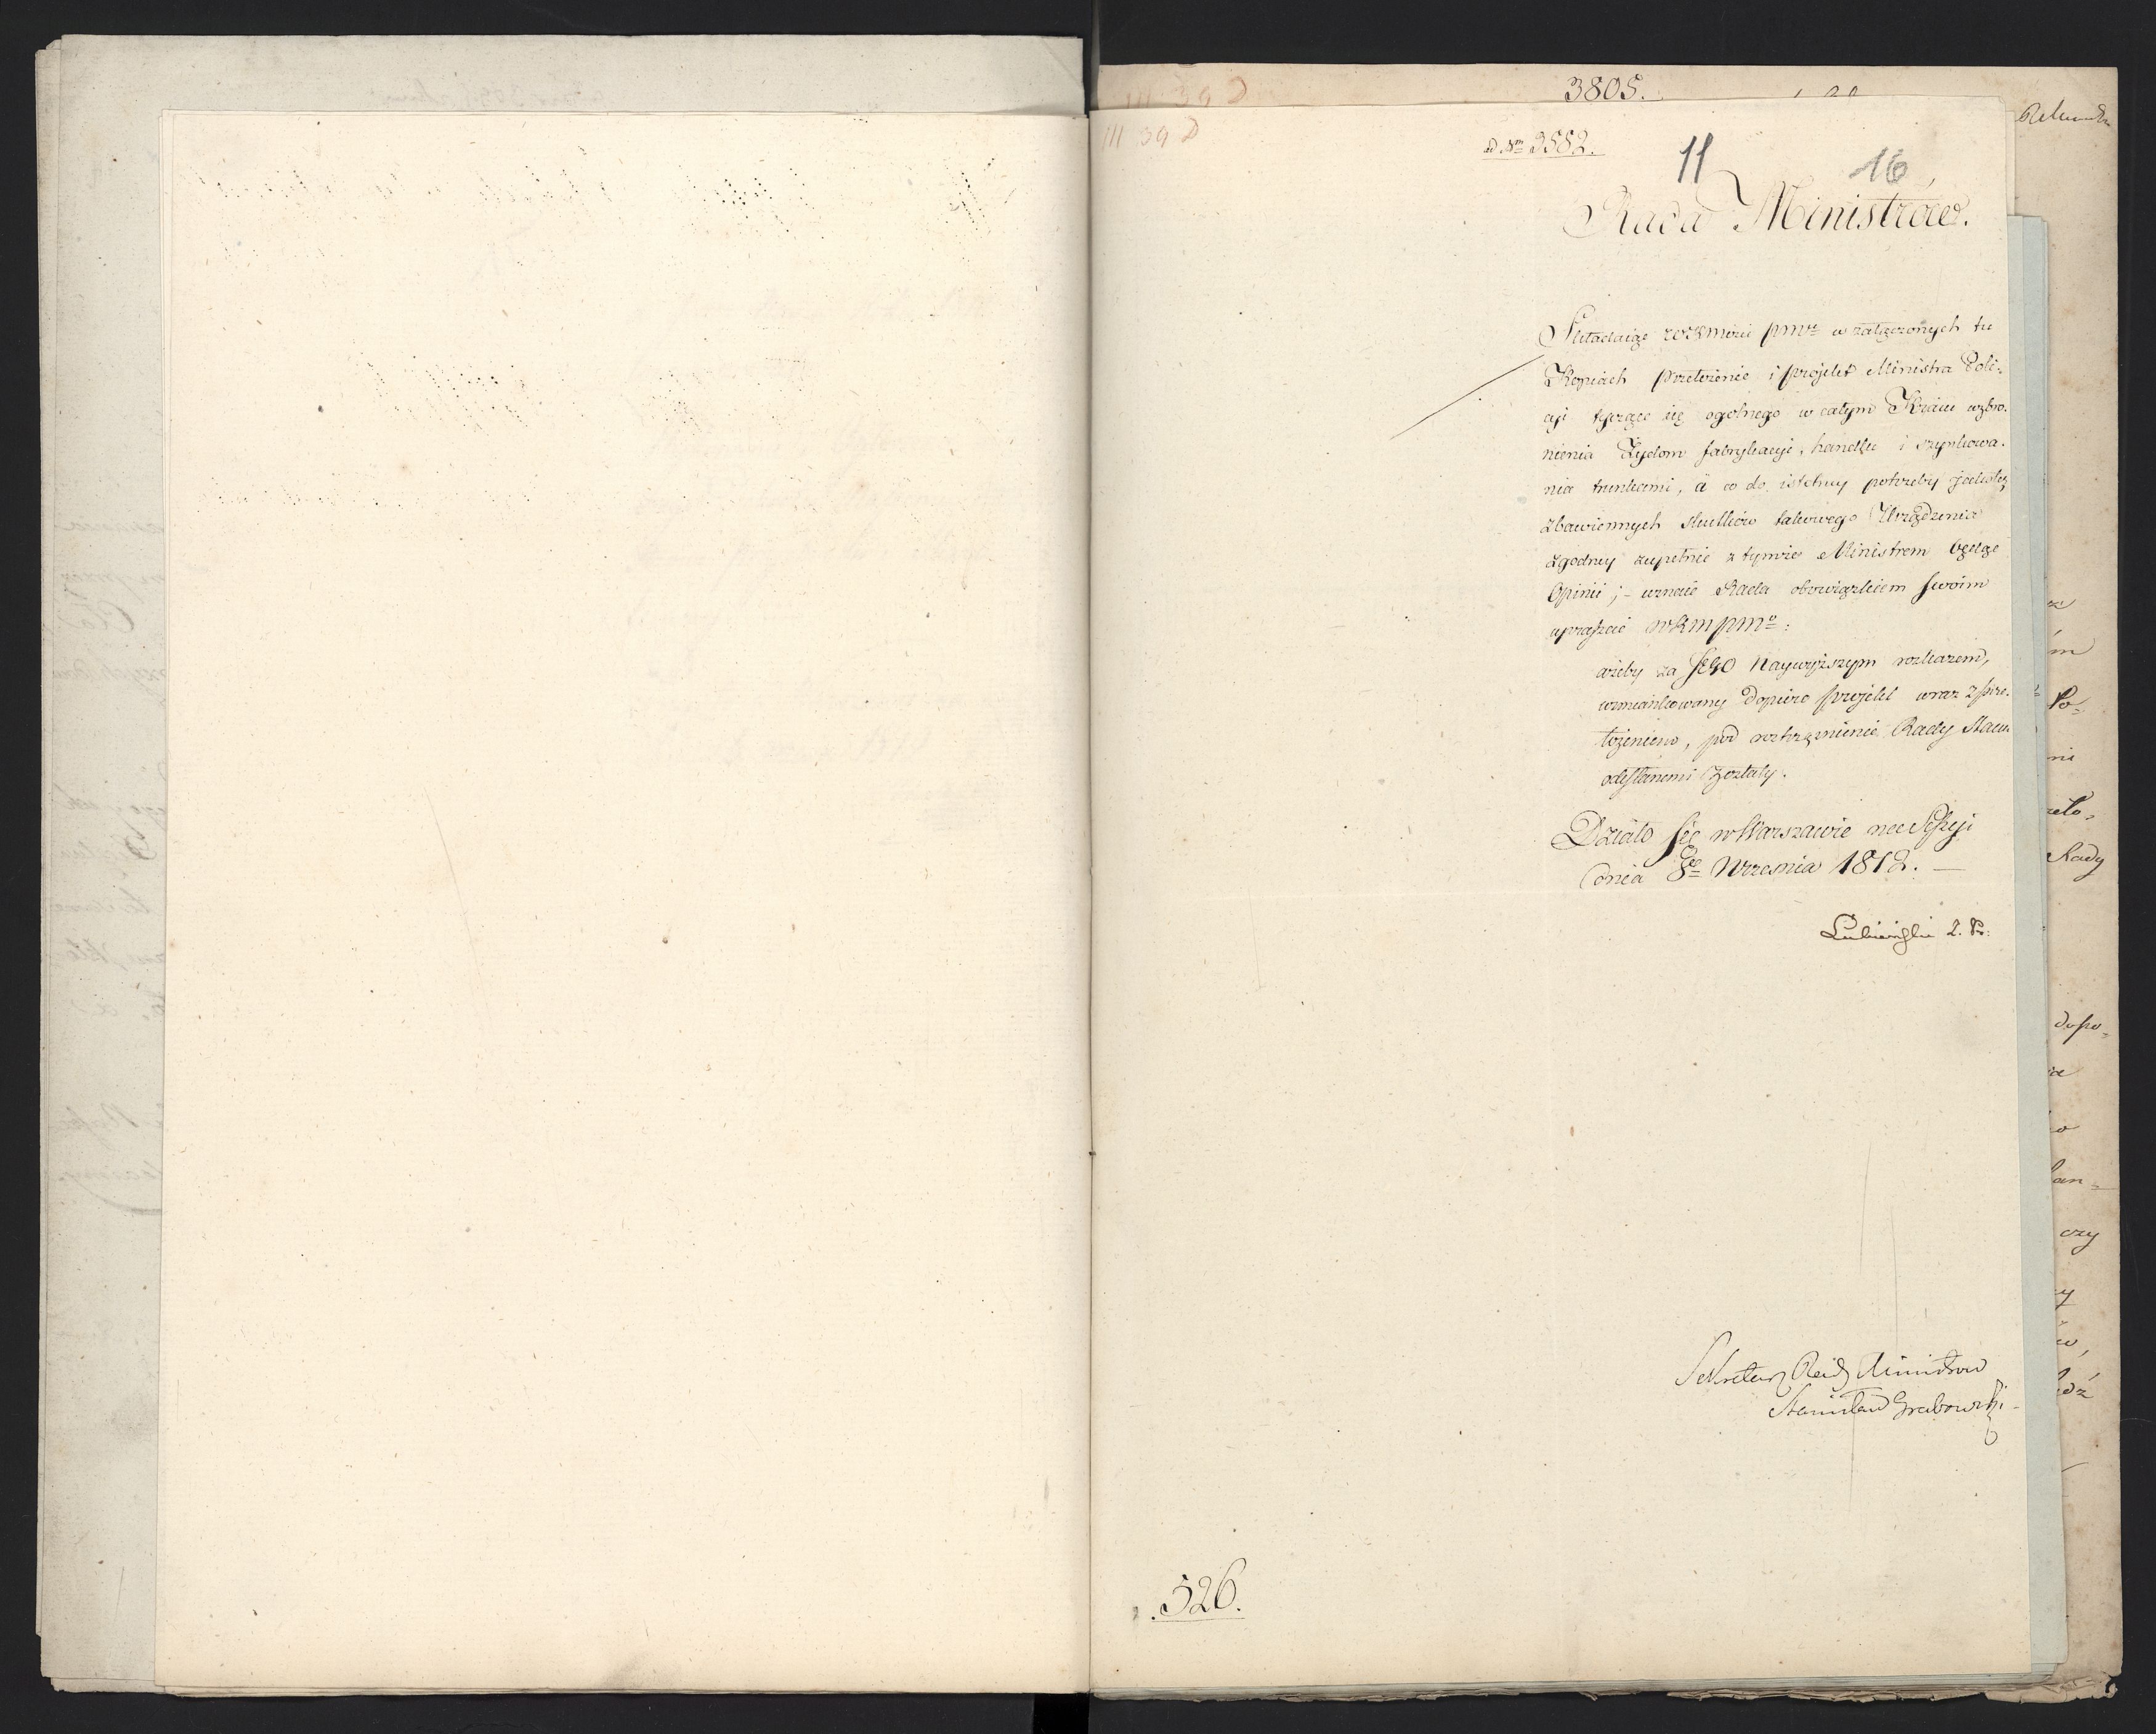 3805.
III 39 D
III 39 D
ad Nm 3582.
11
16
Rada Ministrów.
Składaiąc WKMości pmu w załączonych tu
Kopiach przełożenie i projekt Ministra Poli-
cyi tyczące się ogolnego w całym Kraiu wzbro-
nienia Żydom fabrykacyi, handlu i szynkowa-
nia trunkami, à co do istotney potrzeby jakoteż
zbawiennych skutków takowego Urządzenia
zgodney zupełnie z tymże Ministrem będąc
Opinii; - uznaie Rada obowiązkiem swoim
upraszać WKMPMo:
ażeby za JEGO Naywyższym rozkazem,
wzmiankowany dopiero projekt wraz z prze-
łożeniem, pod roztrząśnienie Rady Stanu
odesłanemi zostały.
Działo się w Warszawie na Sessyi
dnia 8go Września 1812. —
Lubieński z. P.
Sekretarz Rady Ministrow
Stanisław Grabowski
526.
Po-
ni
Rady
dopo-
czy